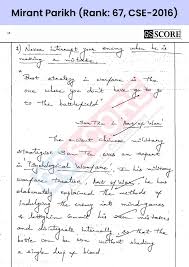 Mirant Parikh (Rank: 67, CSE-2016)
GS SCORE
Never interrupt your enemy when he is
making a mistake.
"Best strategy in warfare is the
one where you don't have to go
to the battlefield"
Sun Tzu in Art of War
The ancient chinese military
strategist Sun Tzu was an expert
in Psychological Warfare. In his military
warfare treatise, Art of War, he has
elaborately explained the methods of
indulging the enemy into mind-games
mistakes
and disintegrate internally so that the
battle could be won without shedding
a single drop of blood